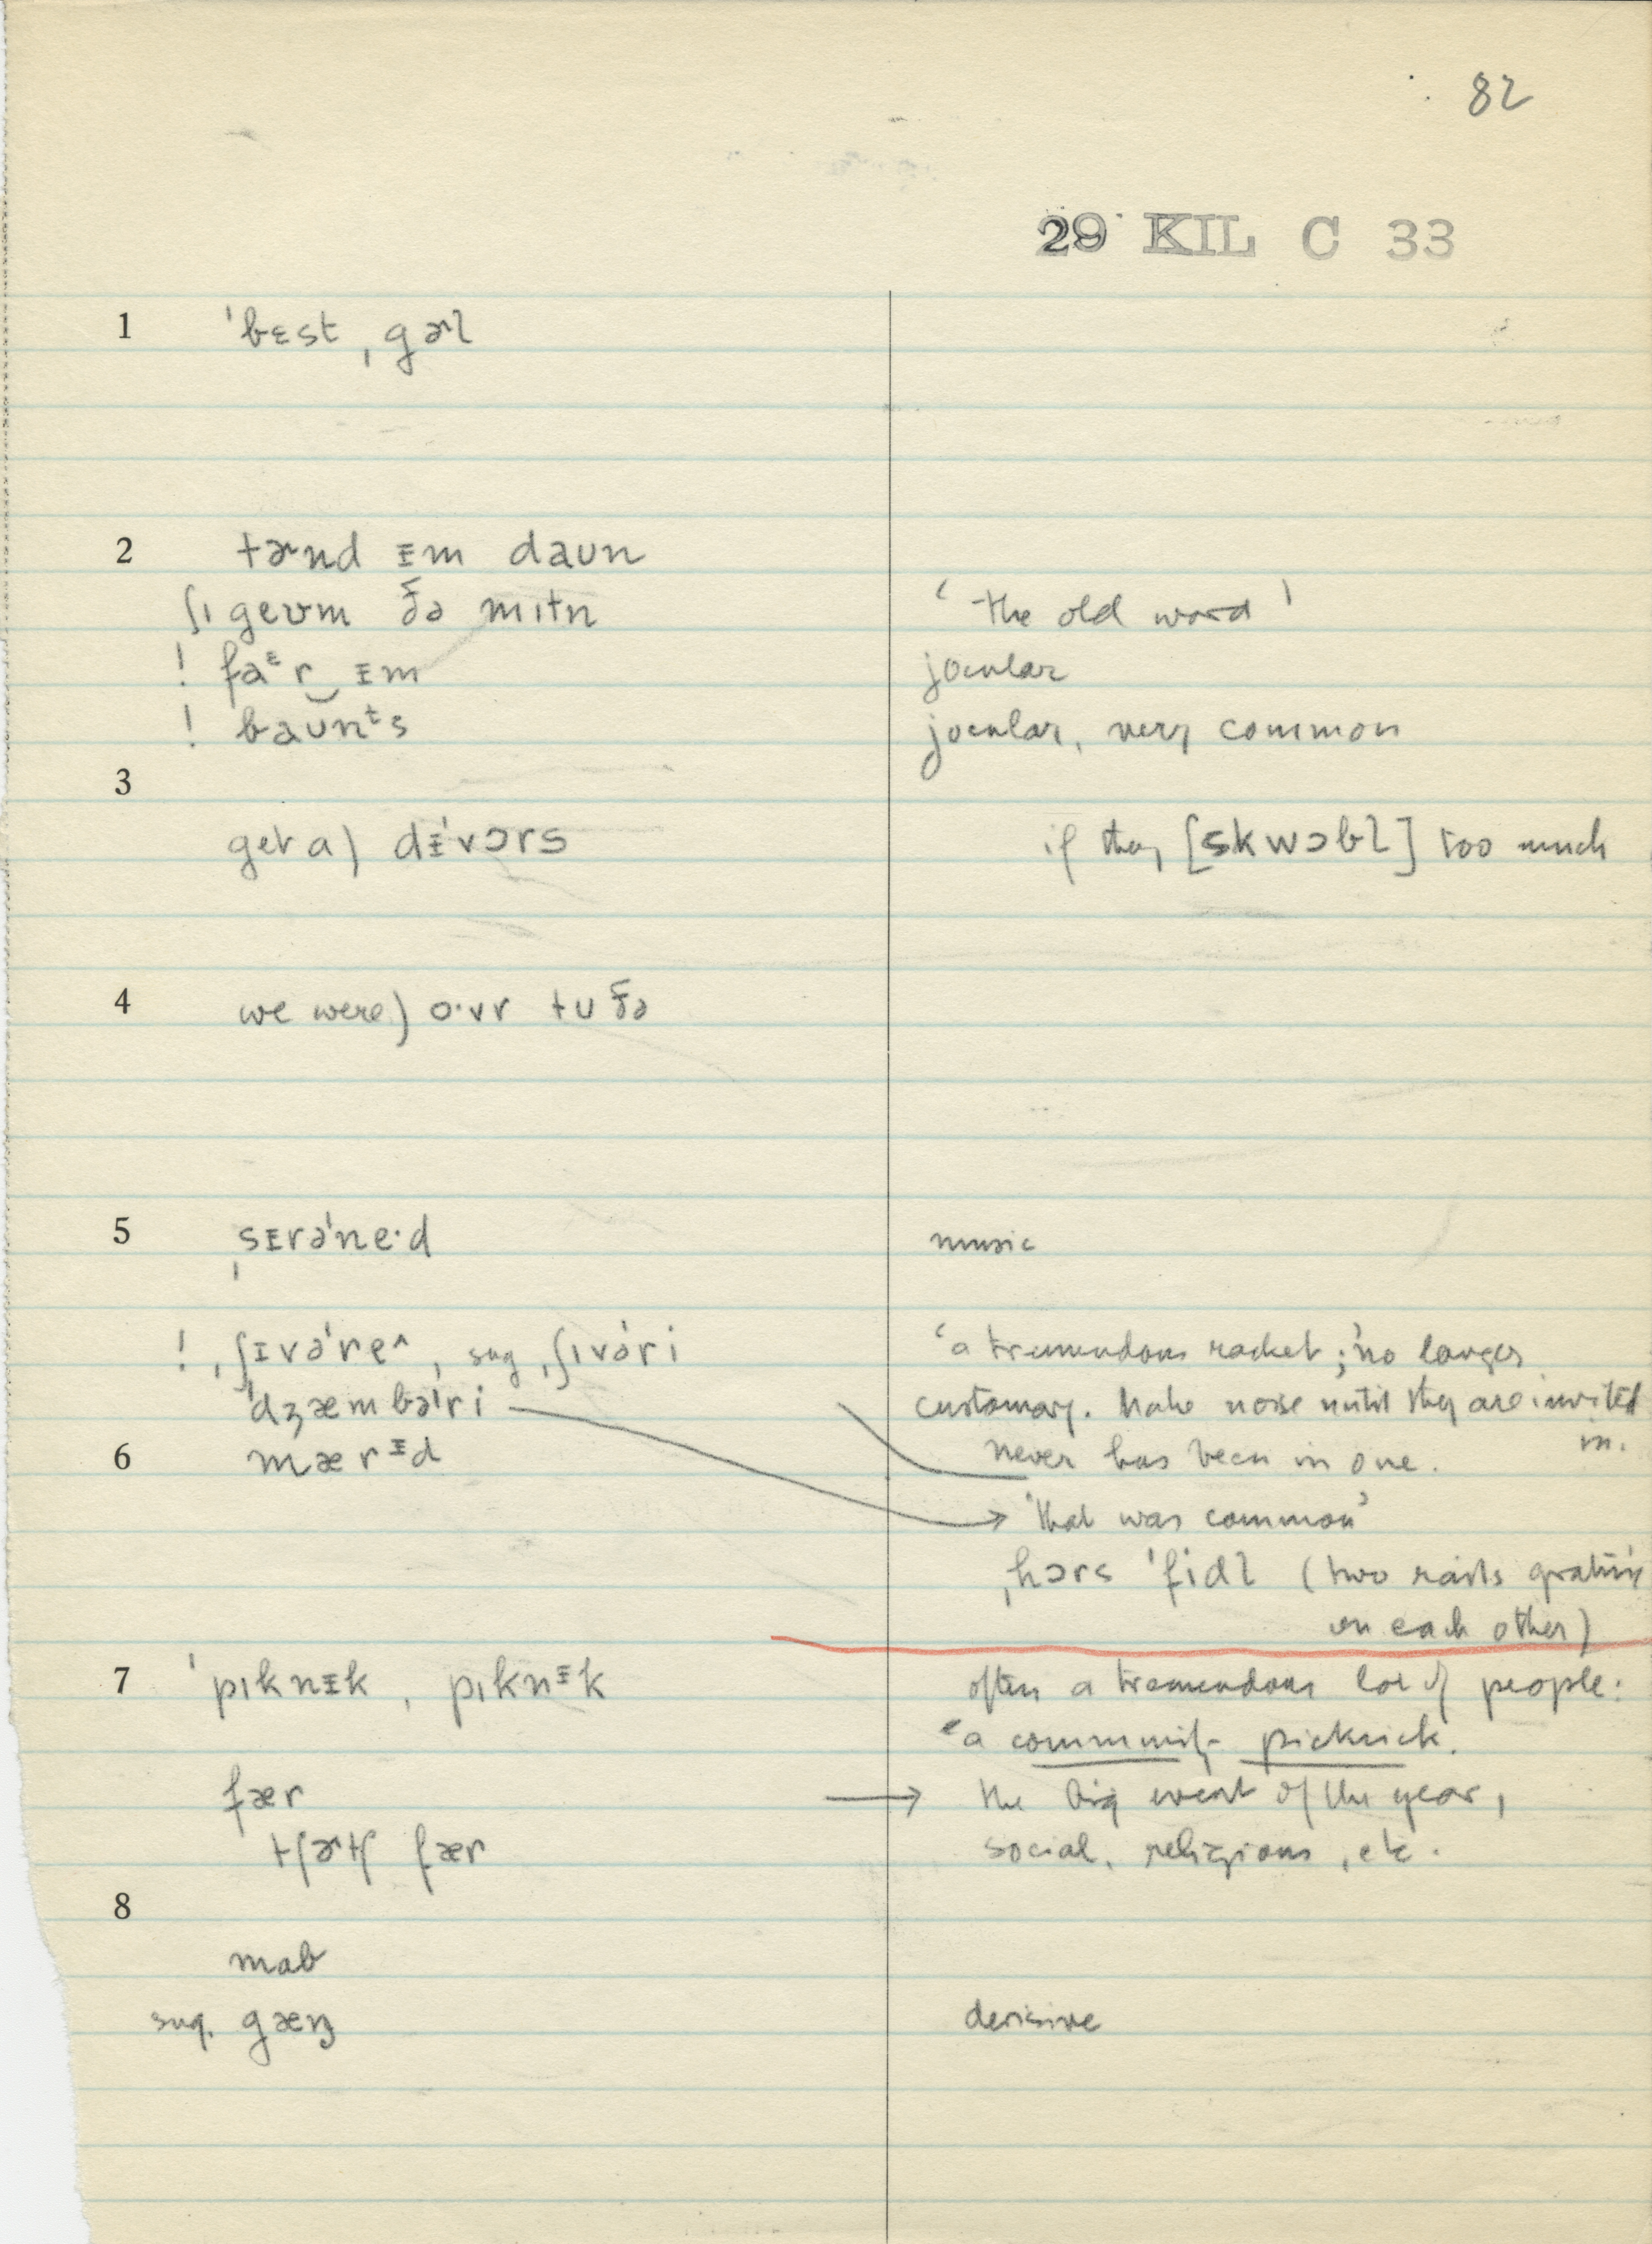 82
29 KIL C 33
1 ˈbɛst ˌgɚl
2 tɚnd ᵻm daʊn
ʃɪ geʊm ðə mɪtn ‘the old word’
! faᵋr‿ᵻm jocular
! baʊnᵗs jocular, very common
3
get a) dᵻˈvɔrs if they [skwɔbl] too much
4 we were) o·vr tʊ ðə
5 ˌsᵻrəˈne·d music
! ˌʃᵻvəˈre^, sug ˌʃɪvəˈri ‘a tremendous racket’; no longer
ˈdʒæmbəˈri customary. Make noise until they are invited in.
6 mærᵻd never has been in one.
→ ‘that was common’
ˌhɔrs ˈfidl (two rails grating
on each other)
7 ˈpɪknᵻk, pɪknᵻk often a tremendous lot of people:
‘a community picknick.
fær → the big event of the year,
tʃɚtʃ fær social, religious, etc.
8
mab
sug. gæŋ derisive